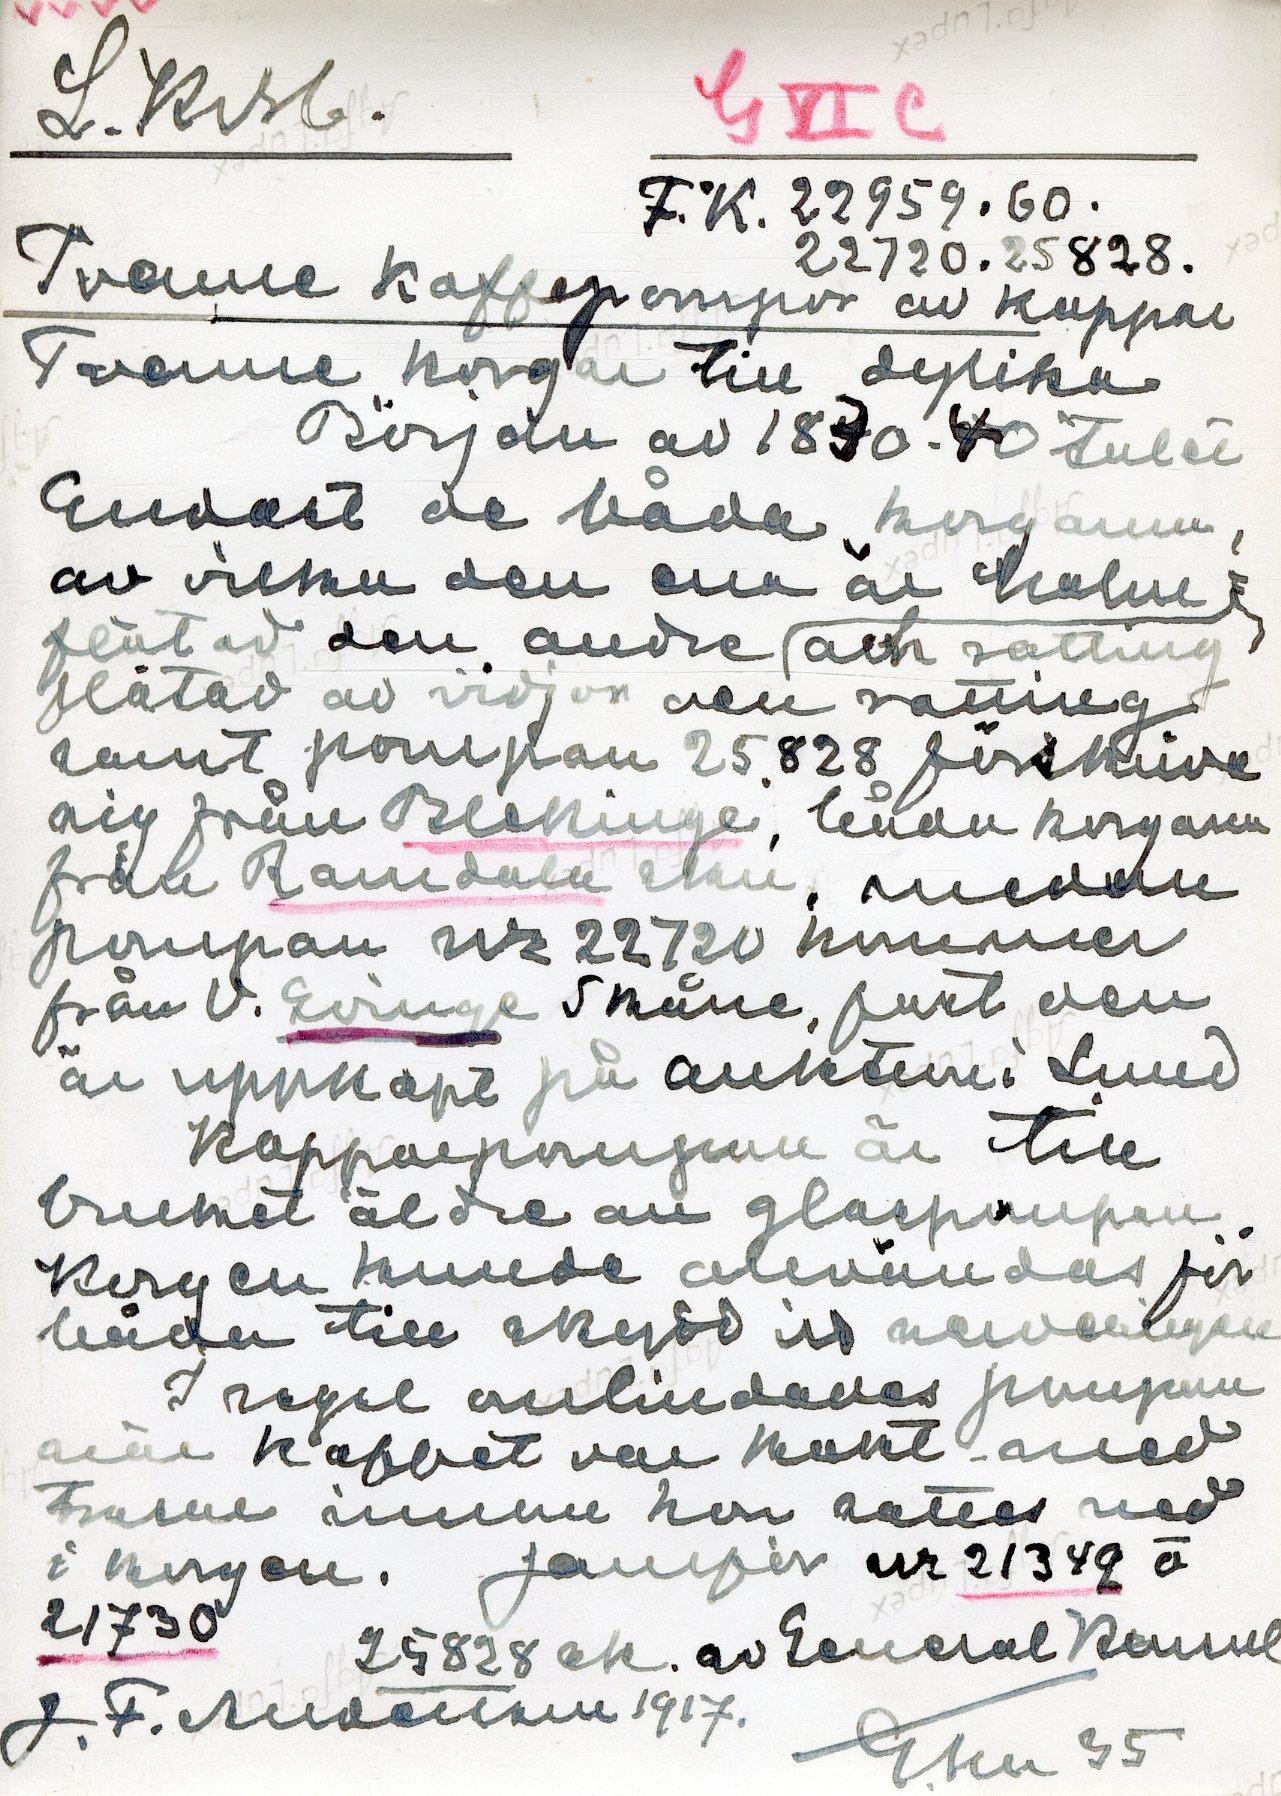 L. Krbl.
G VI C
F.K. 22959.60.
22720.25828.
Tvenne Kaffepompor av koppar
Tvenne korgar till dylika
Början av 1830-40 talet
Endast de båda korgarna,
av vilka den ena är halm-
flätad den andre (ach rotting)
flätad av vidjor den rotting
samt pompan 25.828 förskriva
sig från Blekinge, båda korgarna
från Ramdala skn, medan
pompan nr 22720 kommer
från V. Skåne, fast den
är uppköpt på auktion i Lund
Kopparpompan är till
bruket äldre än glaspompan.
Korgen kunde användas för
båda till skydd vid
I regel omlindades pompan
när kaffet var kokt med
trasor innan hon sattes ned
i korgen. Jämför nr 21349 o
21730
25828 sk. av General Konsul
J. F. 1917.
35